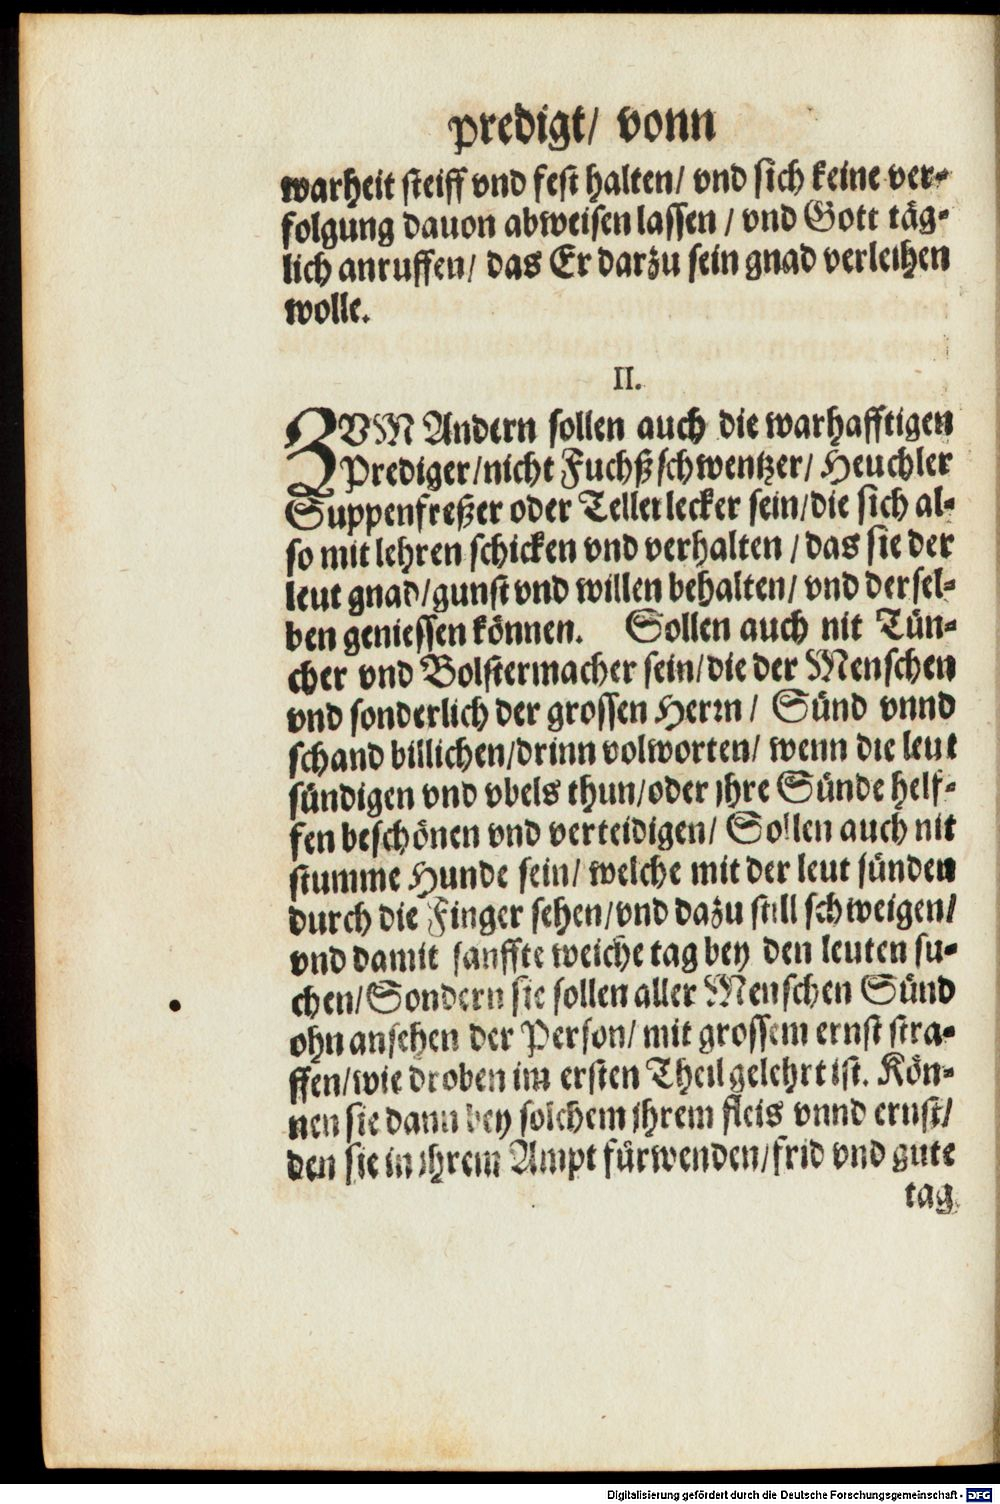 predigt/ vonn
warheit steiff vnd fest halten/ vnd sich keine ver-
folgung dauon abweisen lassen / vnd Gott täg-
lich anruffen/ das Er darzu sein gnad verleihen
wolle.
II.
ZVM Andern sollen auch die warhafftigen
Prediger/nicht Fuchßschwentzer/ Heuchler
Suppenfreßer oder Tellerlecker sein/die sich al-
so mit lehren schicken vnd verhalten / das sie der
leut gnad/gunst vnd willen behalten/ vnd dersel-
ben geniessen können. Sollen auch nit Tün-
cher vnd Bolstermacher sein/die der Menschen
vnd sonderlich der grossen Herrn / Sünd vnnd
schand billichen/drinn volworten/ wenn die leut
sündigen vnd vbels thun/oder jhre Sünde helf-
fen beschönen vnd verteidigen/ Sollen auch nit
stumme Hunde sein/ welche mit der leut sünden
durch die Finger sehen/vnd dazu still schweigen/
vnd damit sanffte weiche tag bey den leuten su-
chen/Sondern sie sollen aller Menschen Sünd
ohn ansehen der Person/ mit grossem ernst stra-
ffen/wie droben im ersten Theil gelehrt ist. Kön-
nen sie dann bey solchem jhrem fleis vnnd ernst/
den sie in jhrem Ampt fürwenden/frid vnd gute
tag
Digitalisierung gefördert durch die Deutsche Forschungsgemeinschaft - DFG